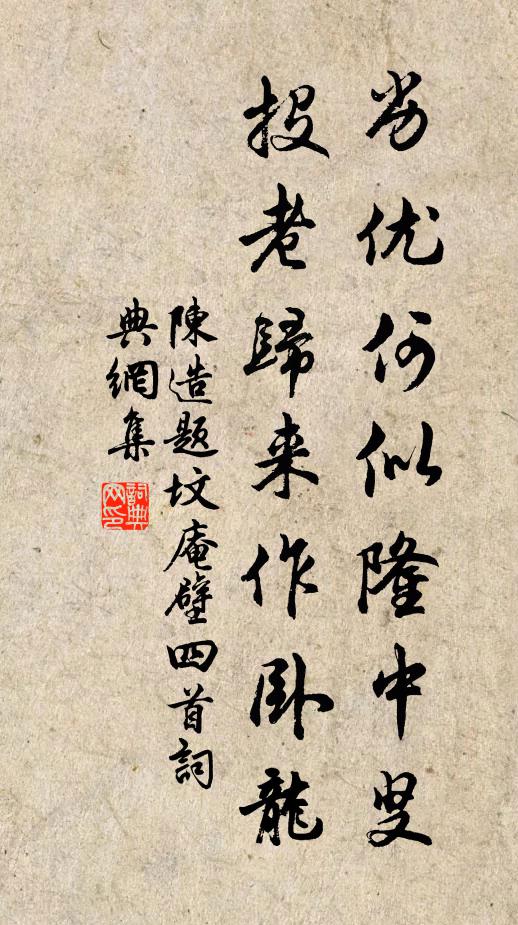 劣优何似隆中叟
投老歸来作卧龍
陳造題坟庵壁四首詞
典網集
詞典網印